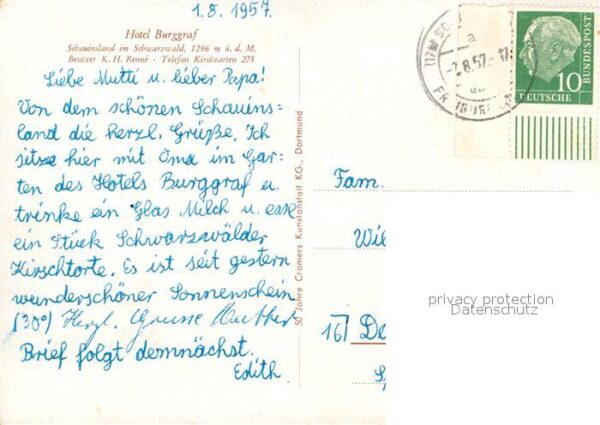 1.8.1957.
Hotel Burggraf
Schauinsland im Schwarzwald, 1286 m ü. d. M.
Besitzer K. H. Renné - Telefon Kirchzarten 275
Liebe Mutti u. lieber Papa!
Von dem schönen Schauins=
land die herzl. Grüße. Ich
sitze hier mit Oma im Gar=
ten des Hotels Burggraf u.
trinke ein Glas Milch u. esse
ein Stück Schwarzwälder
Kirschtorte. Es ist seit gestern
wunderschöner Sonnenschein
(30°) Herzl. Grüsse
Brief folgt demnächst.
Edith.
50 Jahre Cramers Kunstanstalt KG., Dortmund
a
-2.8.57.-17
10
DEUTSCHE
BUNDESPOST
Fam.
Wil
16) De
privacy protection
Datenschutz